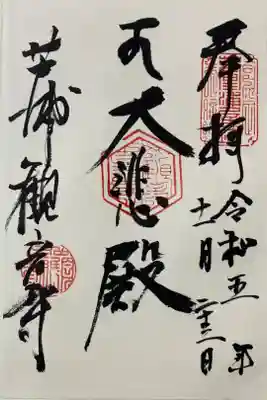 奉拝
令和五年
十一月二十三日
大悲殿
芦浦観音寺